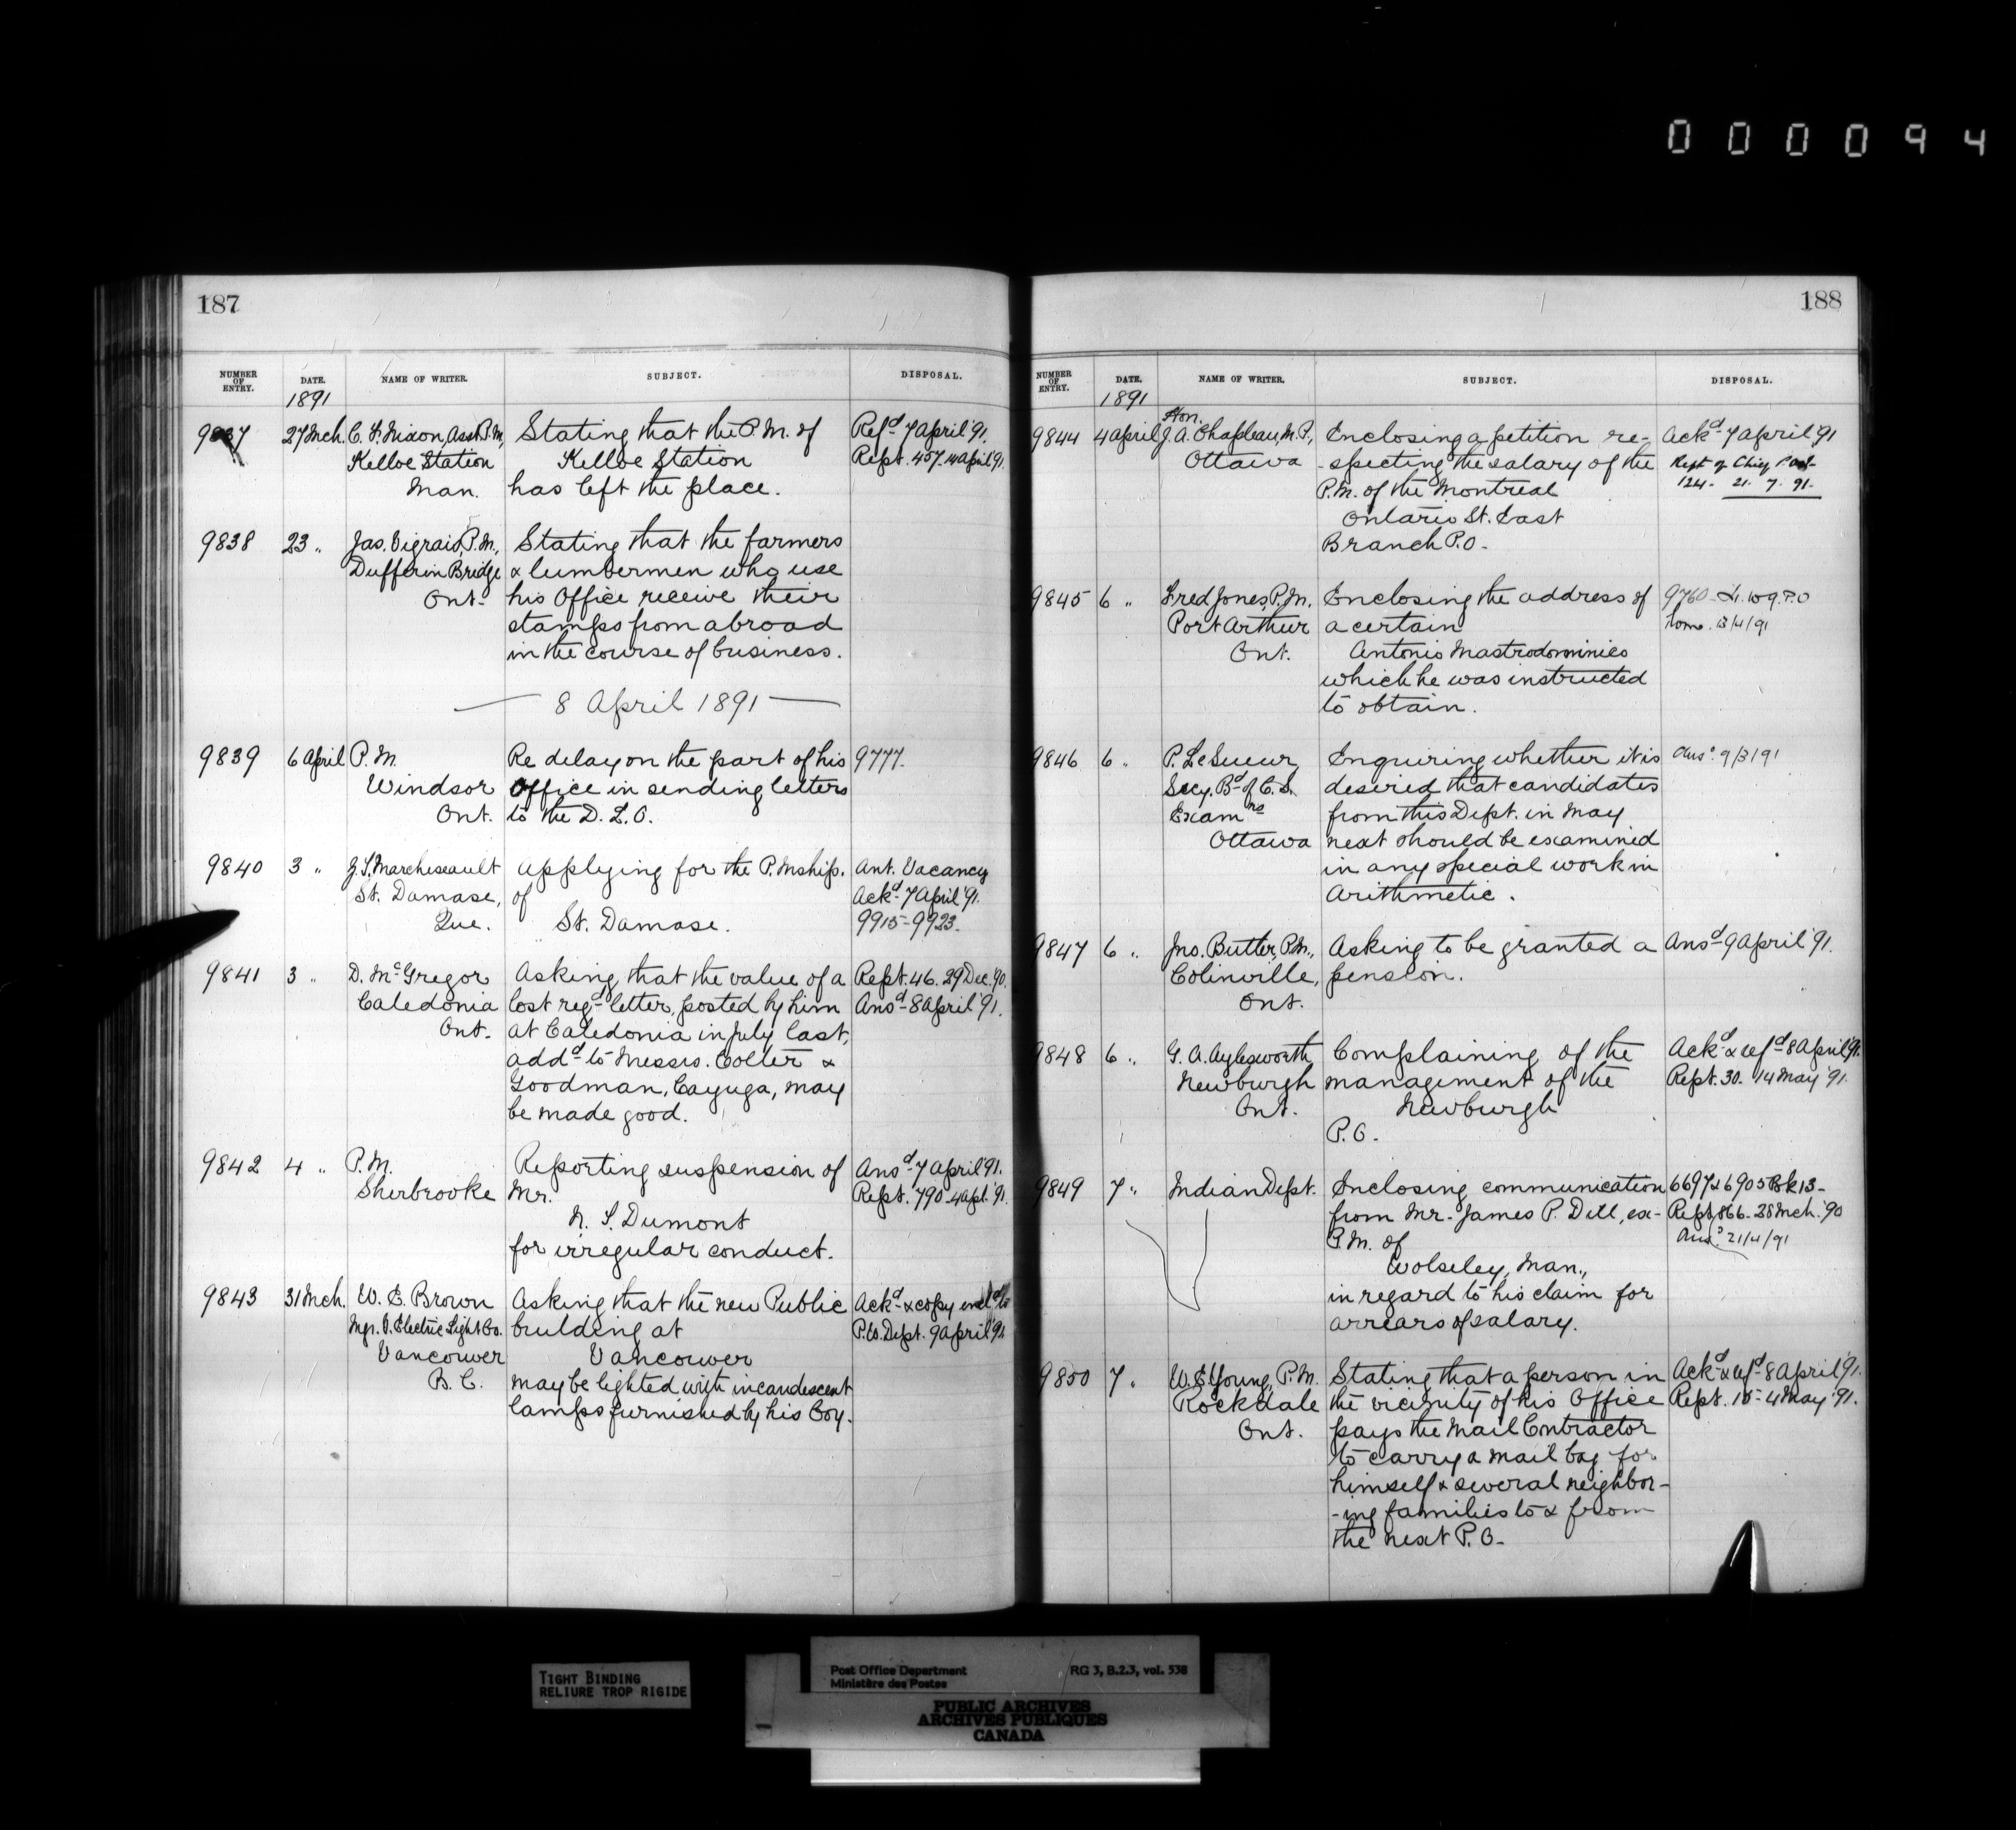 0 0 0 0 9 4
187
NUMBER OF ENTRY. DATE. NAME OF WRITER. SUBJECT. DISPOSAL.
1891
9837 27 Mch. C. F. Nixon, Asst P.M., Stating that the P.M. of Refd 7 April '91.
Kelloe Station Kelloe Station Rept. 457. 14 April '91.
Man. has left the place.
9838 23 " Jas. Vigrais, P.M., Stating that the farmers
Dufferin Bridge & lumbermen who use
Ont. his Office receive their
stamps from abroad
in the course of business.
— 8 April 1891 —
9839 6 April P.M. Re delay on the part of his 9777.
Windsor Office in sending letters
Ont. to the D. L. O.
9840 3 " Marchessault Applying for the P.Mship. Ant. Vacancy
St. Damase, of Ackd 7 April '91.
Que. St. Damase. 9915-9923.
9841 3 " D. McGregor Asking that the value of a Rept. 46. 29 Dec. '90.
Caledonia lost regd letter, posted by him Ansd 8 April '91.
Ont. at Caledonia in July last,
addd to Messrs. Colter &
Goodman, Cayuga, may
be made good.
9842 4 " P.M. Reporting suspension of Ansd 7 April '91.
Sherbrooke Mr. Rept. 790 4 Apl. '91.
N. S. Dumont
for irregular conduct.
9843 31 Mch. W. E. Brown Asking that the new Public Ackd & copy encld to
Mgr. V. Electric Light Co. building at P.W. Dept. 9 April '91
Vancouver Vancouver
B. C. may be lighted with incandescent
lamps furnished by his Coy.
188
NUMBER OF ENTRY. DATE. NAME OF WRITER. SUBJECT. DISPOSAL.
1891
Hon.
9844 4 April J. A. Chapleau, M.P., Enclosing a petition re- Ackd 7 April '91
Ottawa -specting the salary of the Rept of Chief
P.M. of the Montreal 124. 21. 7. 91.
Ontario St. East
Branch P.O.
9845 6 " Fred Jones, P.M. Enclosing the address of 9760
Port Arthur a certain 13/4/91
Ont. Antonio Mastrodominico
which he was instructed
to obtain.
9846 6 " P. LeSueur, Enquiring whether it is Ansd 9/3/91
Secy. Bd of C. S. desired that candidates
Examrs from this Dept. in May
Ottawa next should be examined
in any special work in
Arithmetic.
9847 6 " Jno. Butler, P.M., Asking to be granted a Ansd 9 April '91.
Colinville, pension.
Ont.
9848 6 " G. A. Aylesworth, Complaining of the Ackd & refd 8 April '91.
Newburgh management of the Rept. 30. 14 May '91.
Ont. Newburgh
P.O.
9849 7 " Indian Dept. Enclosing communication 6697 & 6905 Bk 13-
from Mr. James P. Dill, ex- Rept. 866. 28 Mch. '90
P.M. of Ansd 21/4/91
Wolseley, Man.,
in regard to his claim for
arrears of salary.
9850 7 " W. E. Young, P.M. Stating that a person in Ackd & refd 8 April '91.
Rockdale the vicinity of his Office Rept. 15 - 4 May '91.
Ont. pays the Mail Contractor
to carry a mail bag for
himself & several neighbor-
-ing families to & from
the next P.O.
TIGHT BINDING
RELIURE TROP RIGIDE
Post Office Department RG 3, B.2.3, vol. 538
Ministère des Postes
PUBLIC ARCHIVES
ARCHIVES PUBLIQUES
CANADA